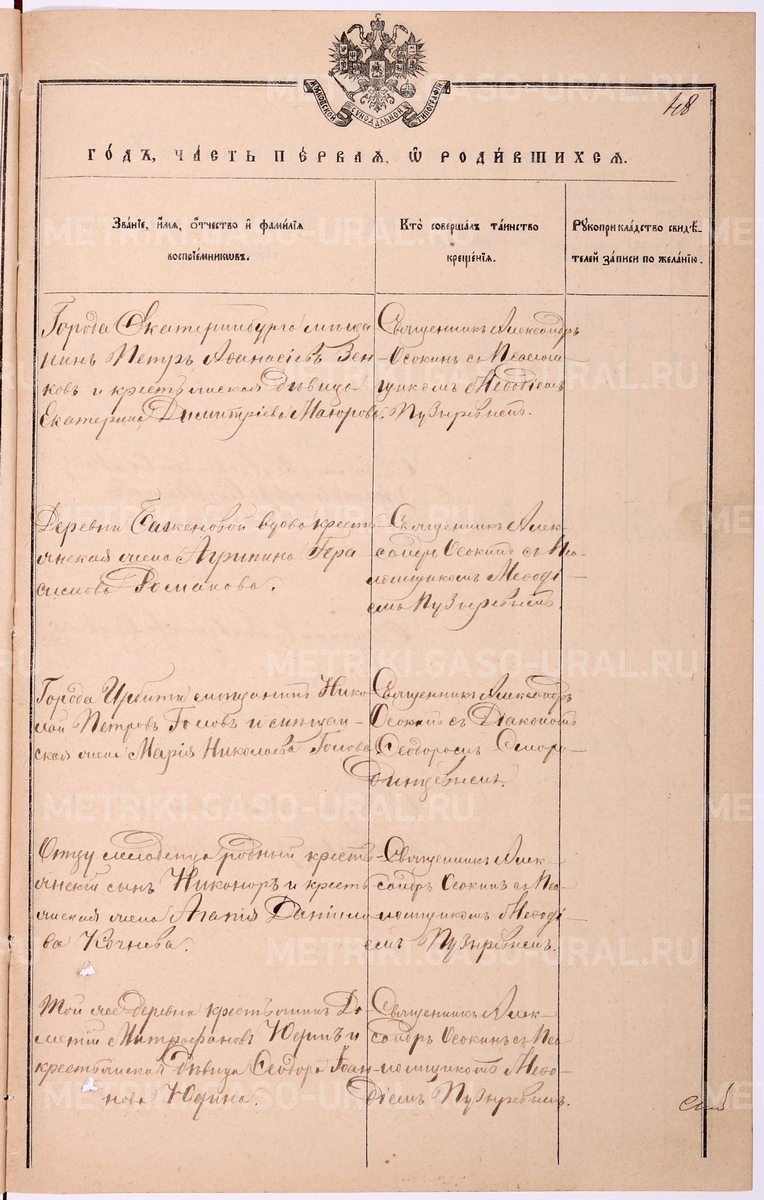 МОСКОВСКОЙ СѴНОДАЛЬНОЙ ТИПОГРАФІИ
48
ГОДЪ, ЧАСТЬ ПЕРВАЯ, Ѽ РОДИВШИХСЯ.
Званіе, имя, отчество и фамилія
воспріемниковъ.
Кто совершалъ таинство
крещенія.
Рукоприкладство свидѣ-
телей записи по желанію.
Города Екатеринбурга мѣща
нинъ Петръ Аѳанасіевъ Зен
ковъ и крестьянская дѣвица
Екатерина Димитріева Мазорова.
Священникъ Александръ
Осокинъ съ Псалом
щикомъ Меѳодіемъ
Пузыревымъ.
Деревни Баженовой вдова крестъ
янская жена Агрипина Гера
симова Романова.
Священникъ Алек-
сандръ Осокинъ съ Пса
ломщикомъ Меѳоді
емъ Пузыревымъ.
Города Ирбити мѣщанинъ Нико
лай Петровъ Головъ и мѣщан-
ская жена Марія Николаева Голова
Священникъ Александръ
Осокинъ съ Діакономъ
Ѳеодоромъ
Отцу младенца родный кресть
янскій сынъ Никаноръ и кресть
янская жена Агапія Даніило
ва Кочнева.
Священникъ Алек-
сандръ Осокинъ съ Пса-
ломщикомъ Меѳоді
емъ Пузыревымъ.
Той же деревни крестьянинъ До
метій Митрофановъ Юдинъ и
крестьянская дѣвица Ѳеодора Іоан
нова Юдина.
Священникъ Алек-
сандръ Осокинъ съ Пса-
ломщикомъ Меѳо-
діемъ Пузыревымъ.
METRIKI.GASO-URAL.RU